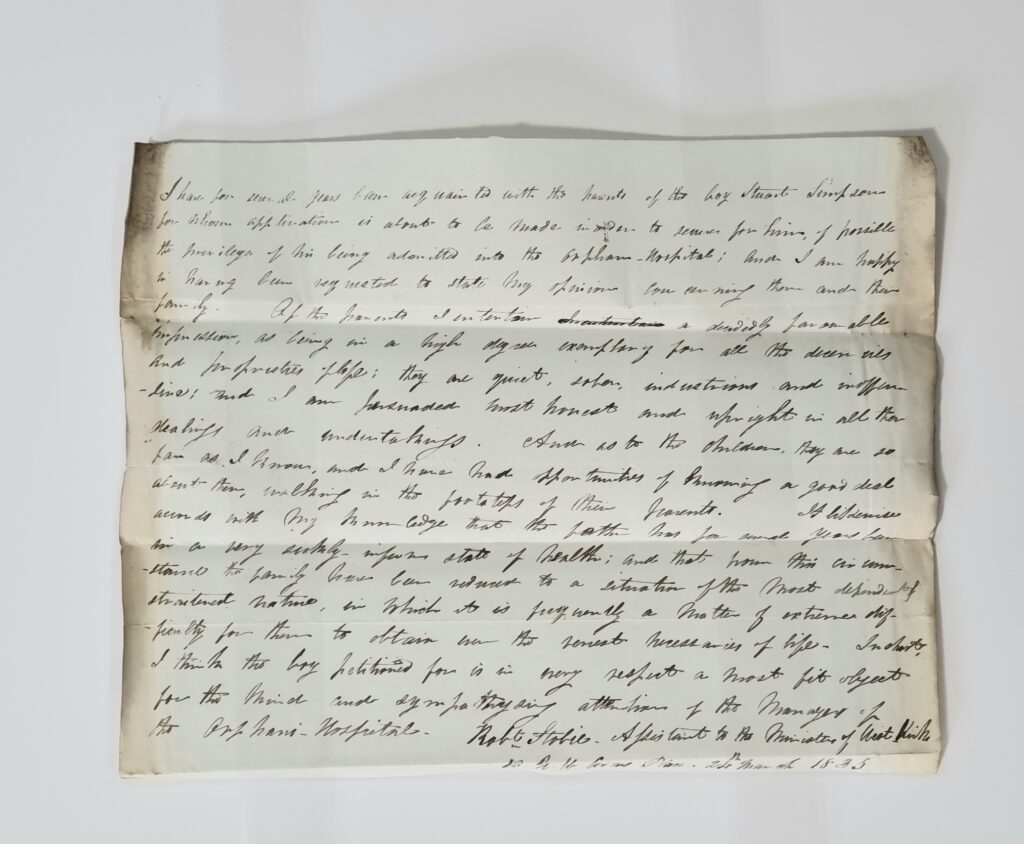 I have for several years been acquainted with the parents of the boy Stuart Simpson
for whom application is about to be made in order to secure for him, if possible
the privilege of his being admitted into the Orphan-Hospital; and I am happy
in having been requested to state my opinion concerning them and their
family. Of the parents I entertain a decidedly favourable
impression, as being in a high degree exemplary for all the decencies
and proprieties of life; they are quiet, sober, industrious and inoffen
-sive; and I am persuaded most honest and upright in all their
dealings and undertakings. And as to the children, they are so
far as I know, and I have had opportunities of knowing a good deal
about them, walking in the footsteps of their parents. It likewise
accords with my knowledge that the father has for several years been
in a very sickly infirm state of health; and that from this circum
-stance the family have been reduced to a situation of the most dependent &
straitened nature, in which it is frequently a matter of extreme dif-
-ficulty for them to obtain even the merest necessaries of life. In short,
I think the boy petitioned for is in every respect a most fit object
for the kind and sympathysing attentions of the Managers of
the Orphan-Hospital. Robt. Stobie. Assistant to the Ministers of West Kirk
Place. 25th March 1835